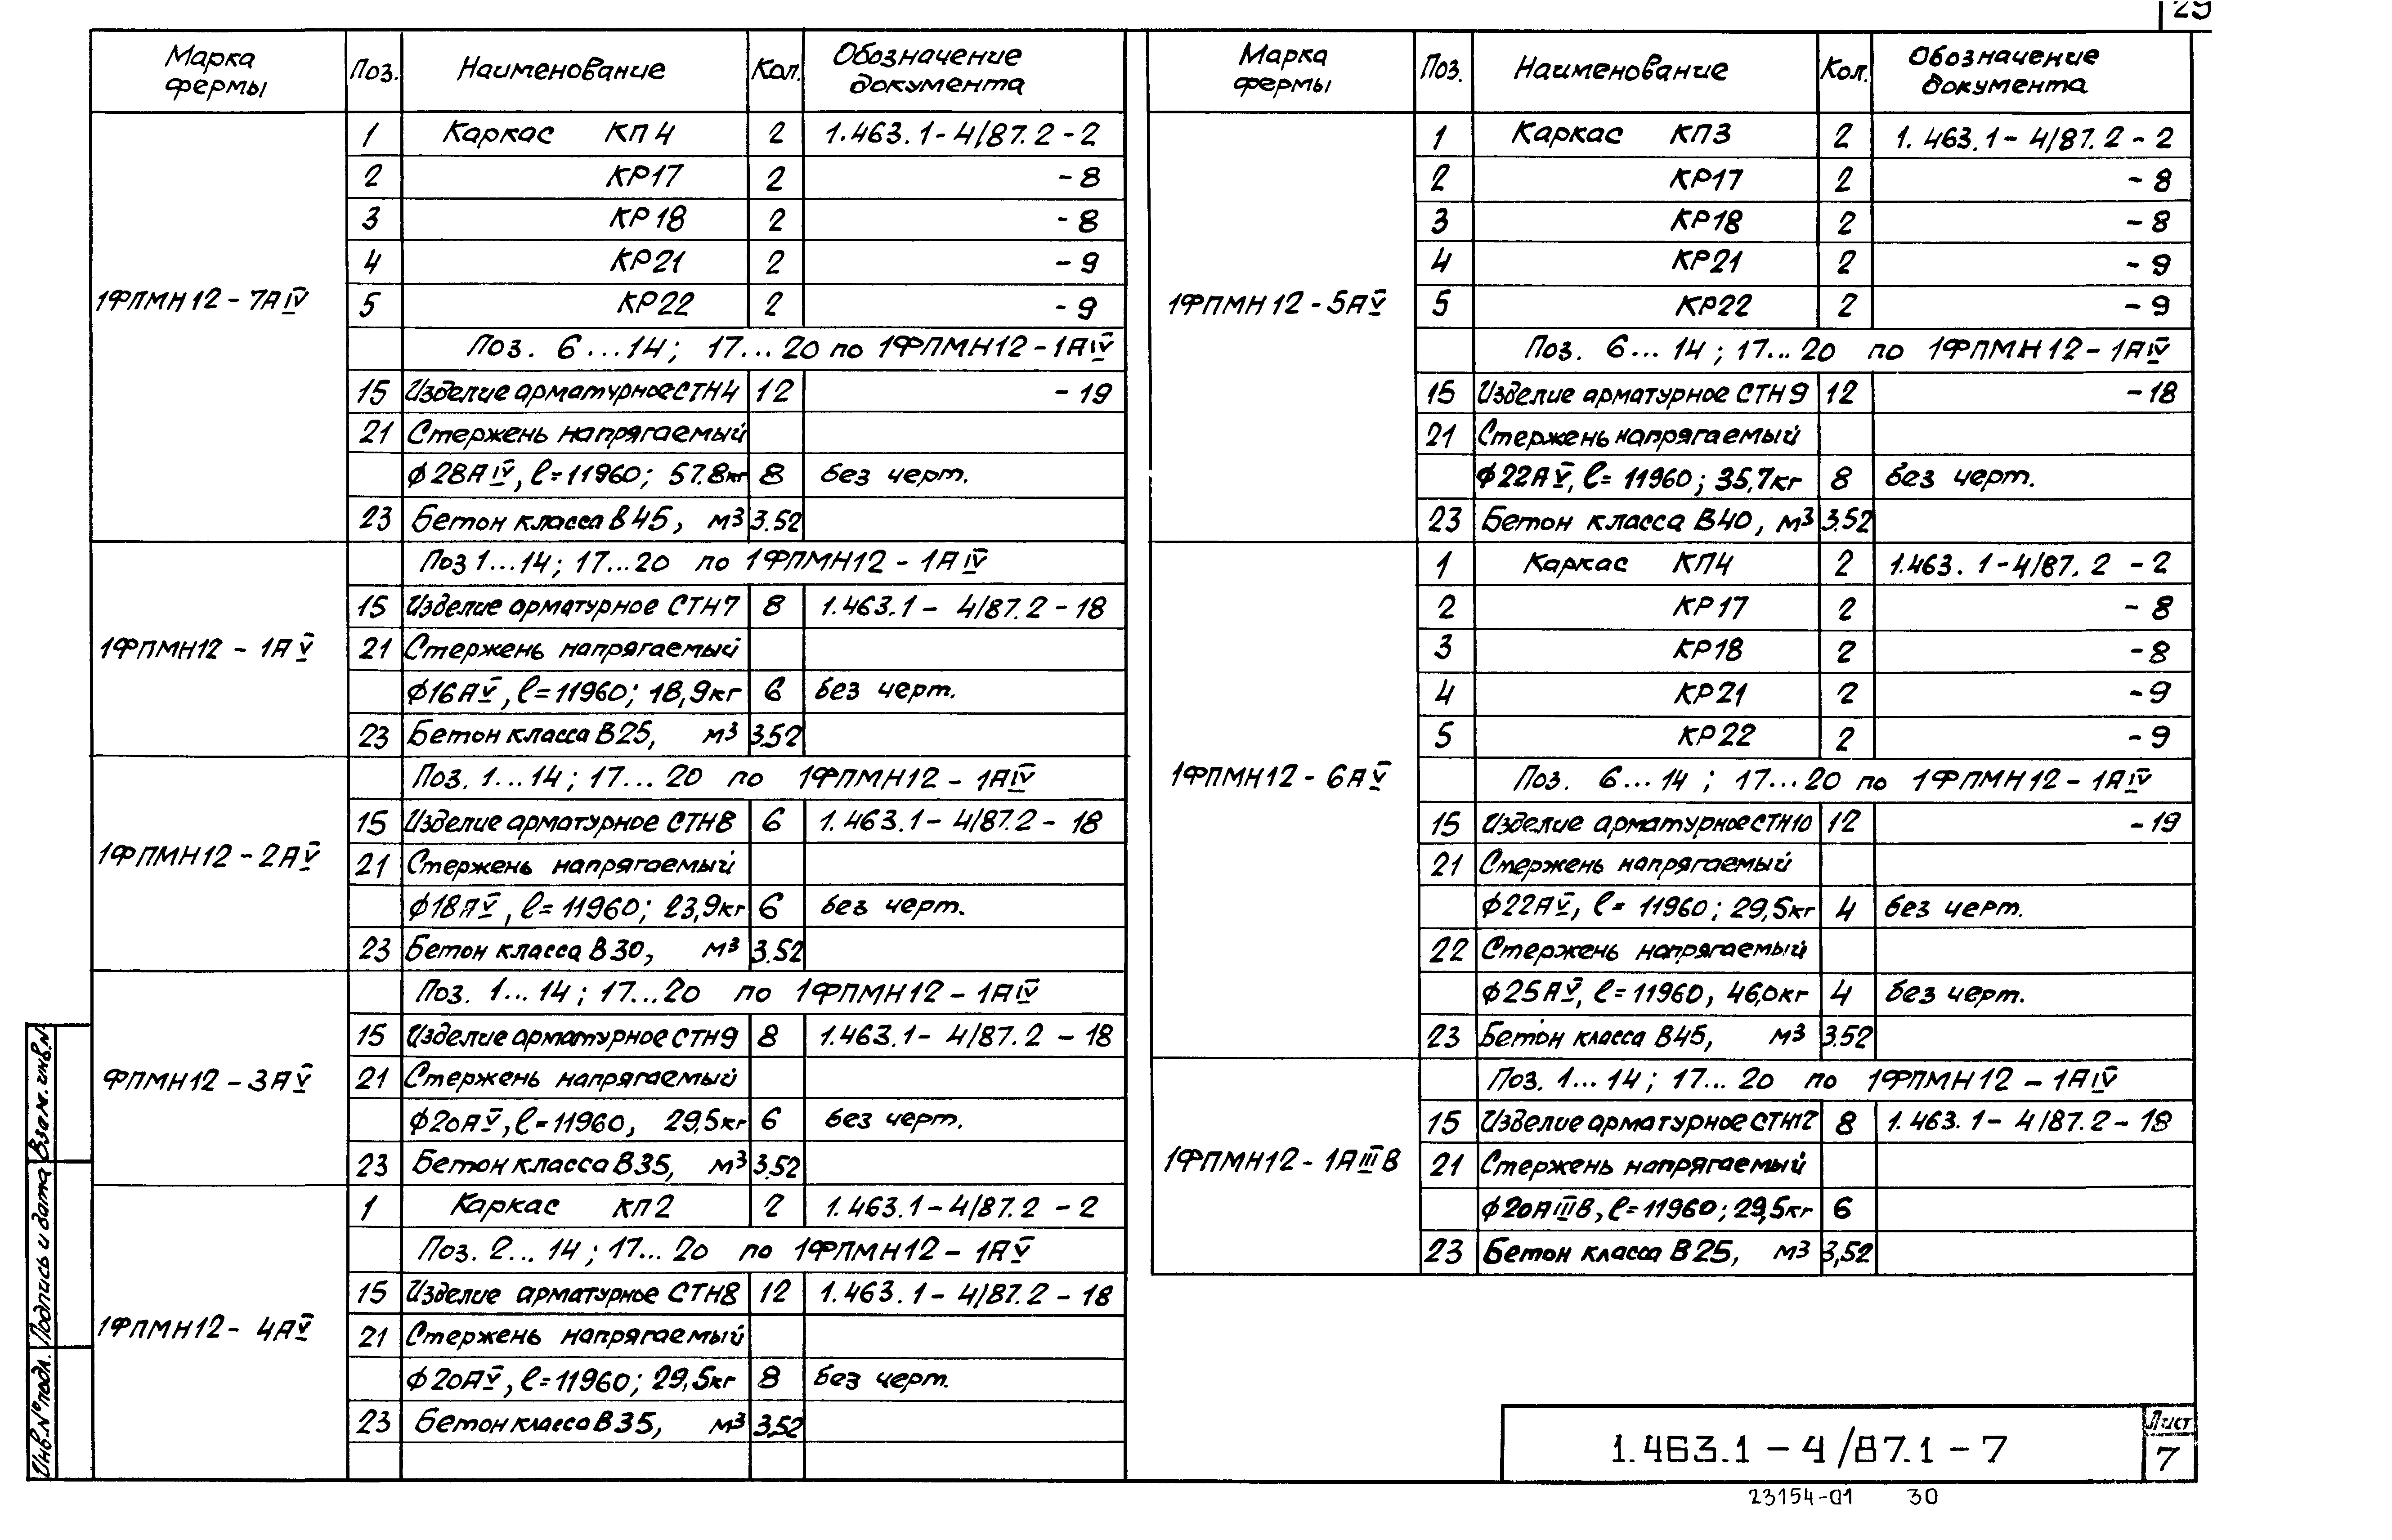 29
Марка фермы Поз. Наименование Кол. Обозначение документа
1ФПМН12-7АIV
1 Каркас КП4 2 1.463.1-4/87.2-2
2 КР17 2 -8
3 КР18 2 -8
4 КР21 2 -9
5 КР22 2 -9
Поз. 6...14; 17...20 по 1ФПМН12-1АIV
15 Изделие арматурное СТН4 12 -19
21 Стержень напрягаемый
ϕ28АIV, ℓ=11960; 57.8кг 8 без черт.
23 Бетон класса В45, м³ 3.52
1ФПМН12-1АV
Поз 1...14; 17...20 по 1ФПМН12-1АIV
15 Изделие арматурное СТН7 8 1.463.1-4/87.2-18
21 Стержень напрягаемый
ϕ16АV, ℓ=11960; 18,9кг 6 без черт.
23 Бетон класса В25, м³ 3.52
1ФПМН12-2АV
Поз. 1...14; 17...20 по 1ФПМН12-1АIV
15 Изделие арматурное СТН8 6 1.463.1-4/87.2-18
21 Стержень напрягаемый
ϕ18АV, ℓ=11960; 23,9кг 6 без черт.
23 Бетон класса В30, м³ 3.52
ФПМН12-3АV
Поз. 1...14; 17...20 по 1ФПМН12-1АIV
15 Изделие арматурное СТН9 8 1.463.1-4/87.2-18
21 Стержень напрягаемый
ϕ20АV, ℓ=11960, 29,5кг 6 без черт.
23 Бетон класса В35, м³ 3.52
1ФПМН12-4АV
1 Каркас КП2 2 1.463.1-4/87.2-2
Поз. 2...14; 17...20 по 1ФПМН12-1АV
15 Изделие арматурное СТН8 12 1.463.1-4/87.2-18
21 Стержень напрягаемый
ϕ20АV, ℓ=11960; 29,5кг 8 без черт.
23 Бетон класса В35, м³ 3,52
Марка фермы Поз. Наименование Кол. Обозначение документа
1ФПМН12-5АV
1 Каркас КП3 2 1.463.1-4/87.2-2
2 КР17 2 -8
3 КР18 2 -8
4 КР21 2 -9
5 КР22 2 -9
Поз. 6...14; 17...20 по 1ФПМН12-1АIV
15 Изделие арматурное СТН9 12 -18
21 Стержень напрягаемый
ϕ22АV, ℓ=11960; 35,7кг 8 без черт.
23 Бетон класса В40, м³ 3.52
1ФПМН12-6АV
1 Каркас КП4 2 1.463.1-4/87.2-2
2 КР17 2 -8
3 КР18 2 -8
4 КР21 2 -9
5 КР22 2 -9
Поз. 6...14; 17...20 по 1ФПМН12-1АIV
15 Изделие арматурное СТН10 12 -19
21 Стержень напрягаемый
ϕ22АV, ℓ=11960; 29,5кг 4 без черт.
22 Стержень напрягаемый
ϕ25АV, ℓ=11960, 46,0кг 4 без черт.
23 Бетон класса В45, м³ 3.52
1ФПМН12-1АIIIВ
Поз. 1...14; 17...20 по 1ФПМН12-1АIV
15 Изделие арматурное СТН12 8 1.463.1-4/87.2-18
21 Стержень напрягаемый
ϕ20АIIIВ, ℓ=11960; 29,5кг 6
23 Бетон класса В25, м³ 3,52
Взам. инв.N
Подпись и дата
Инв.№ подл.
1.463.1-4/87.1-7
Лист
7
23154-01 30